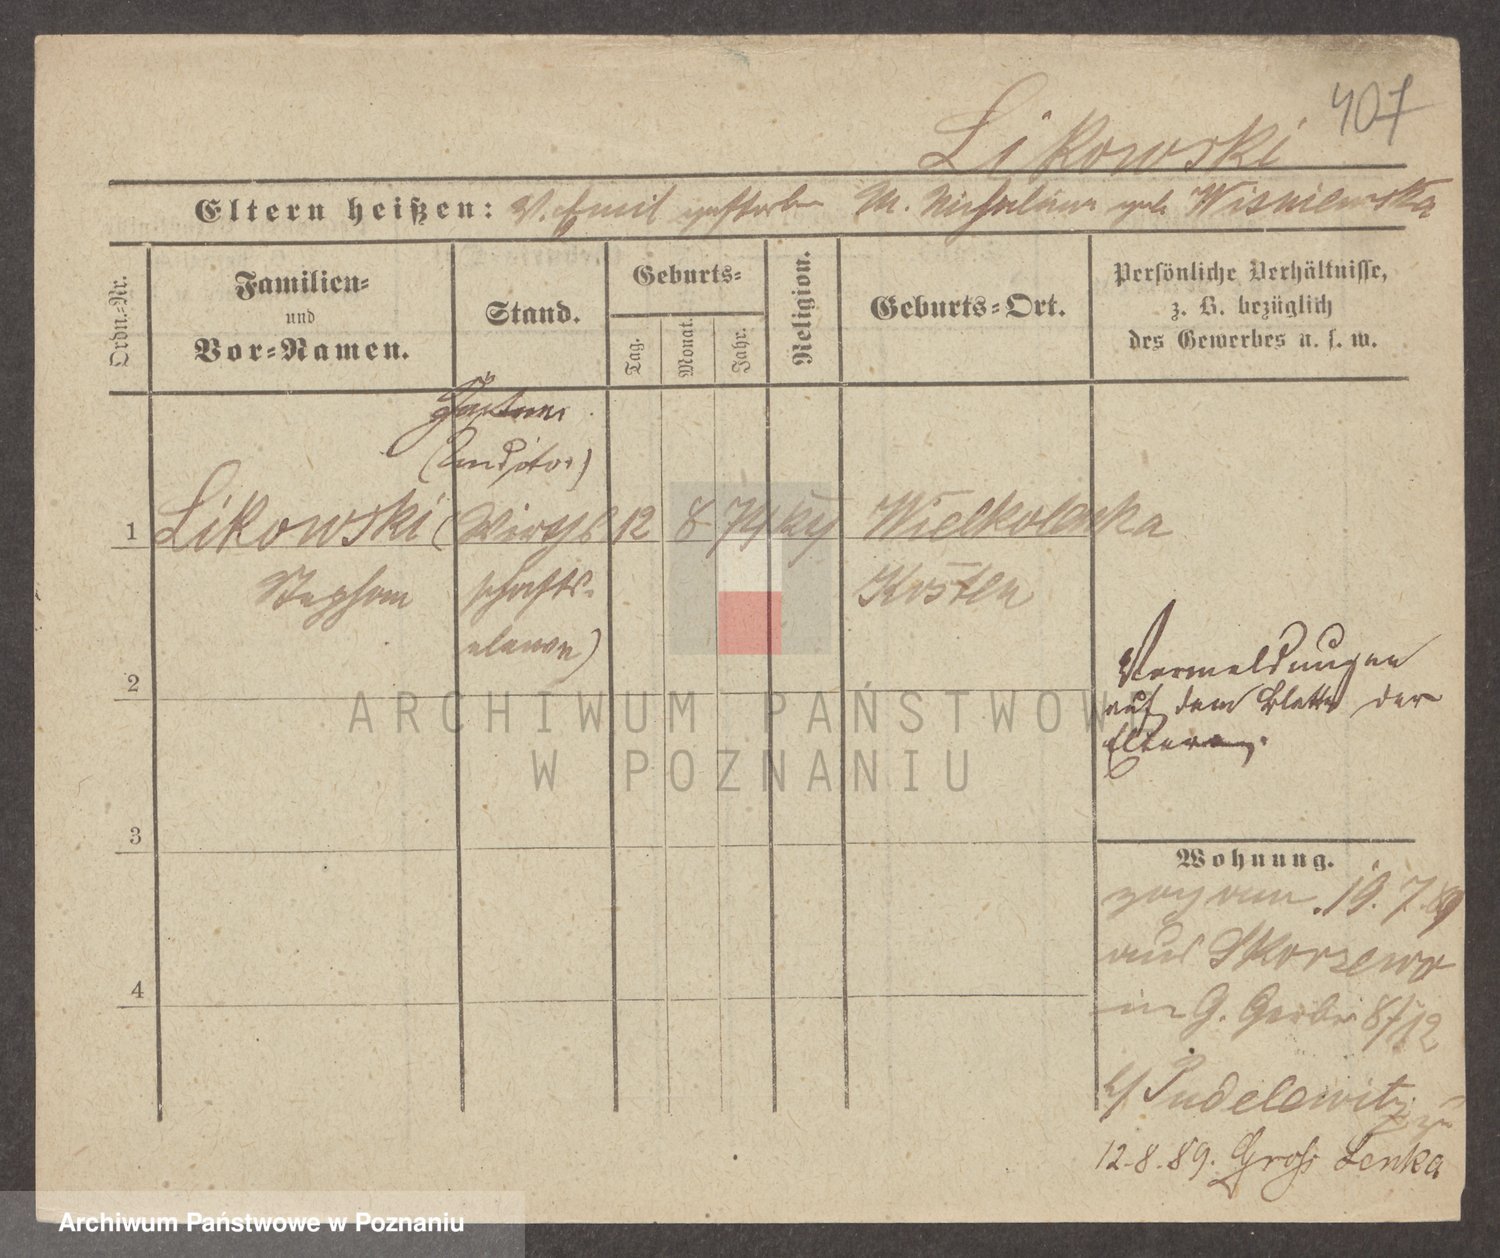 407
Likowski
Eltern heißen: V. Emil gestorben M. Michalina geb. Wisniewska
Ordn.-Nr.
Familien-
und
Vor-Namen.
Stand.
Geburts-
Tag.
Monat.
Jahr.
Religion.
Geburts-Ort.
Persönliche Verhältnisse,
z. B. bezüglich
des Gewerbes u. s. w.
(Conditor)
1 Likowski (Wirth 12 8 74 Wielkolenka
Stephan schafts- Kosten
elewe)
Vermeldungen
auf dem Blatte der
Eltern.
2
3
4
Wohnung.
zog am 19.7.89
aus Skorzewo
in G. Gerber 8/12
b/ Pudelewitz
12.8.89. Gross Lenka
ARCHIWUM PAŃSTWOWE
W POZNANIU
Archiwum Państwowe w Poznaniu